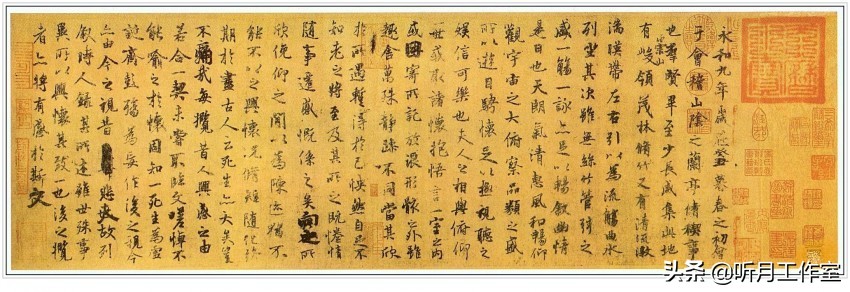 永和九年歲在癸丑暮春之初會
于會稽山陰之蘭亭脩稧事
也羣賢畢至少長咸集此地
有崇山峻領茂林脩竹又有清流激
湍暎帶左右引以為流觴曲水
列坐其次雖無絲竹管弦之
盛一觴一詠亦足以暢敘幽情
是日也天朗氣清惠風和暢仰
觀宇宙之大俯察品類之盛
所以遊目騁懷足以極視聽之
娛信可樂也夫人之相與俯仰
一世或取諸懷抱悟言一室之內
或因寄所託放浪形骸之外雖
趣舍萬殊靜躁不同當其欣
於所遇暫得於己怏然自足不
知老之將至及其所之既惓情
隨事遷感慨係之矣向之所
欣俛仰之閒以為陳迹猶不
能不以之興懷況脩短隨化終
期於盡古人云死生亦大矣豈
不痛哉每攬昔人興感之由
若合一契未嘗不臨文嗟悼不
能喻之於懷固知一死生為虛
誕齊彭殤為妄作後之視今
亦由今之視昔悲夫故列
敘時人錄其所述雖世殊事
異所以興懷其致一也後之攬
者亦將有感於斯文
头条@听月工作室